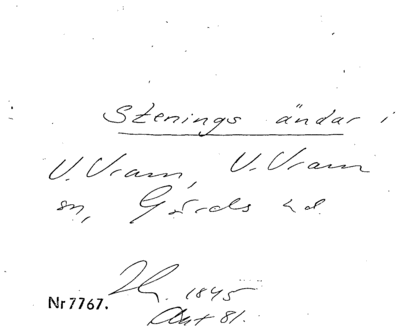 Stenings ändar i
V. Vram, V. Vram
sn, Gärds hd.
1845
Nr 7767.
Ant 81.